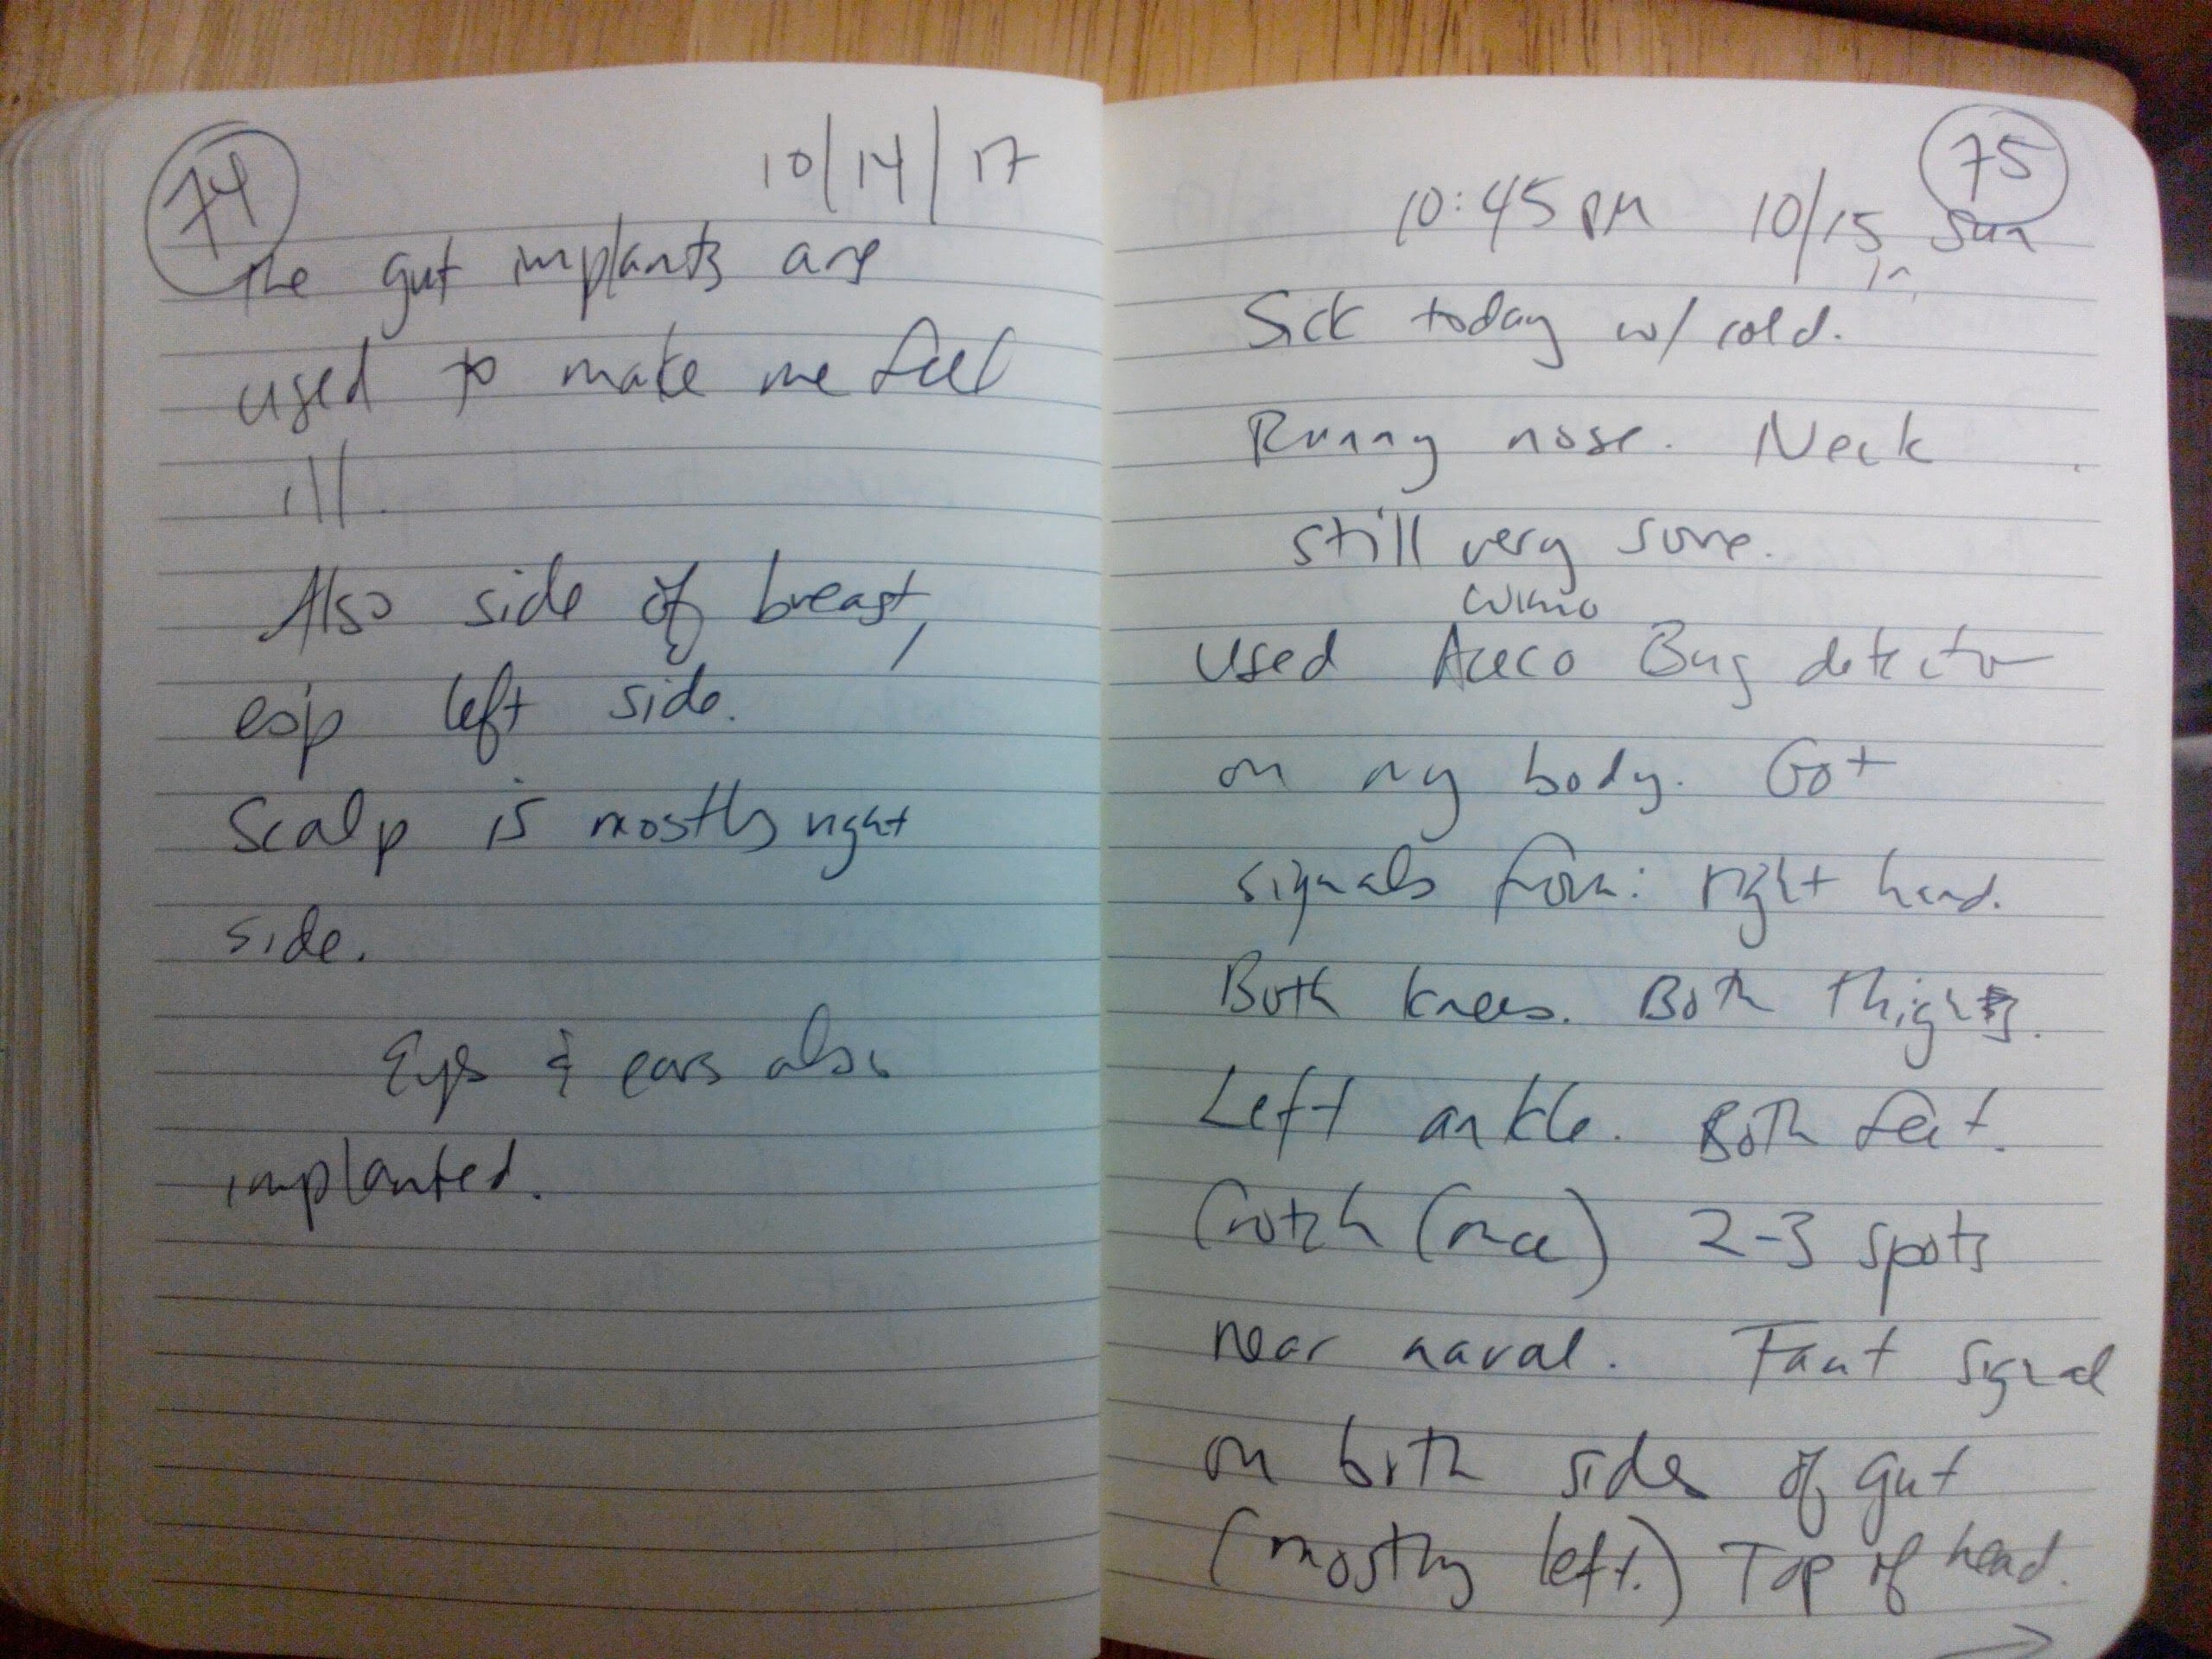 74
10/14/17
The gut implants are
used to make me feel
ill.
Also side of breast,
esp left side.
Scalp is mostly right
side.
Eyes & ears also
implanted.
75
10:45 pm 10/15, Sun
Sick today w/ cold.
Runny nose. Neck
still very sore.
used Aceco Bug detector
on my body. Got
signals from: right hand.
Both knees. Both thighs.
Left ankle. Both feet.
Crotch (once) 2-3 spots
near naval. Faint signal
on both sides of gut
(mostly left.) Top of head.
→